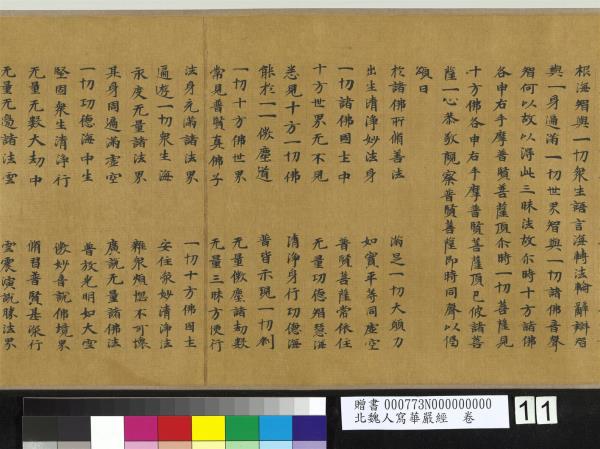 根海智與一切衆生語言海轉法輪辭辯智
與一身遍滿一切世界智與一切諸佛音聲
智何以故以得此三昧法故尒時十方諸佛
各申右手摩普賢菩薩頂尒時一切菩薩見
十方佛各申右手摩普賢菩薩頂已彼諸菩
薩一心恭敬觀察普賢菩薩即時同聲以偈
頌曰
於諸佛所脩善法 滿足一切大願力
出生清淨妙法身 如實平等同虛空
一切諸佛國土中 普賢菩薩常依住
十方世界无不見 无量功德智慧海
悉見十方一切佛 清淨身行功德海
能於一一微塵道 普皆示現一切刹
一切十方佛世界 无量微塵諸劫數
常見普賢真佛子 无量三昧方便行
法身充滿諸法界 一切十方佛國土
遍遊一切衆生海 安住衆妙清淨法
永度无量諸法界 離衆煩惱不可壞
其身周遍滿虛空 廣說无量諸佛法
一切功德海中生 普放光明如大雲
堅固衆生清淨行 微妙音說佛境界
无量无數大劫中 脩習普賢甚深行
无量无邊諸法雲 雲震演說勝法界
贈書 000773N000000000
北魏人寫華嚴經 卷
11